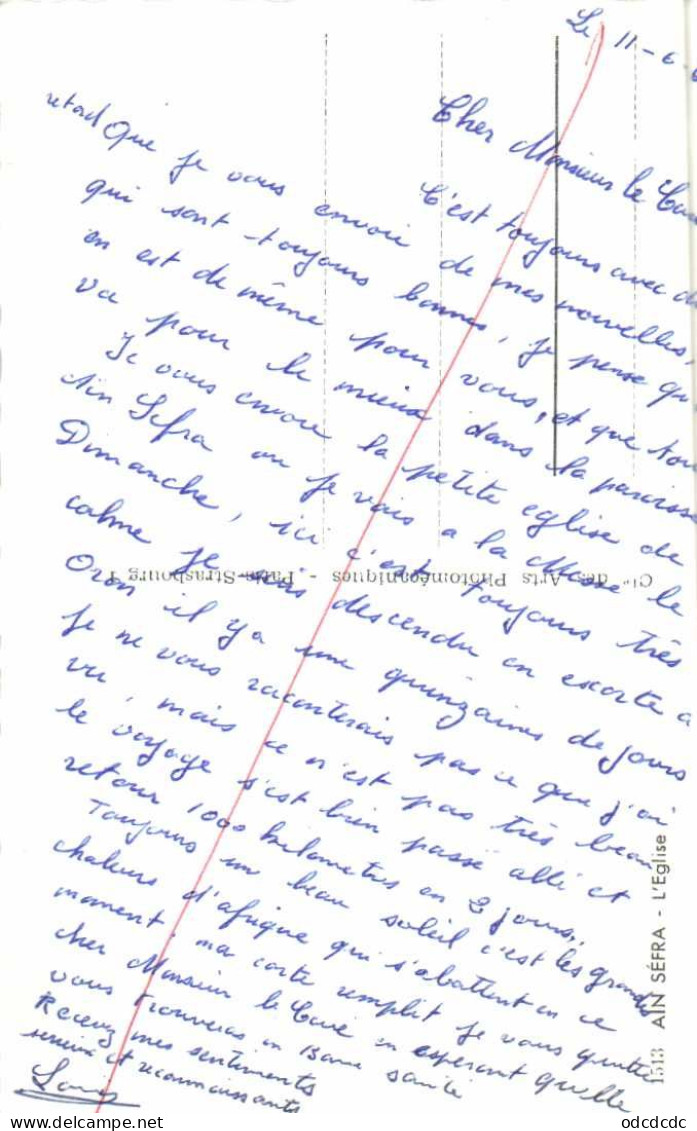 Le 11-6-6
Cher Monsieur le Curé
C'est toujours avec du
retard Que je vous envoie de mes nouvelles,
qui sont toujours bonnes, je pense qu
en est de même pour vous, et que tou
va pour le mieux dans la paroisse
Je vous envoie la petite eglise de
Ain Sefra ou je vais a la Messe le
Dimanche, ici c'est toujours très
calme je suis descendu en escorte a
Oran il y a une quinzaines de jours
Je ne vous raconterais pas ce que j'ai
vu, mais ce n'est pas très beau
le voyage s'est bien passé allé et
retour 1000 kilometres en 2 jours,
Toujours un beau soleil c'est les grandes
chaleurs d'afrique qui s'abattent en ce
moment, ma carte remplit je vous quitte
cher Monsieur le Curé en esperant qu'elle
vous trouveras en Bonne santé
Recevez mes sentiments
et reconnaissants
Louis
Cie des Arts Photomécaniques - Paris-Strasbourg
1513 AÏN SÉFRA - L'Eglise
odcdcdc